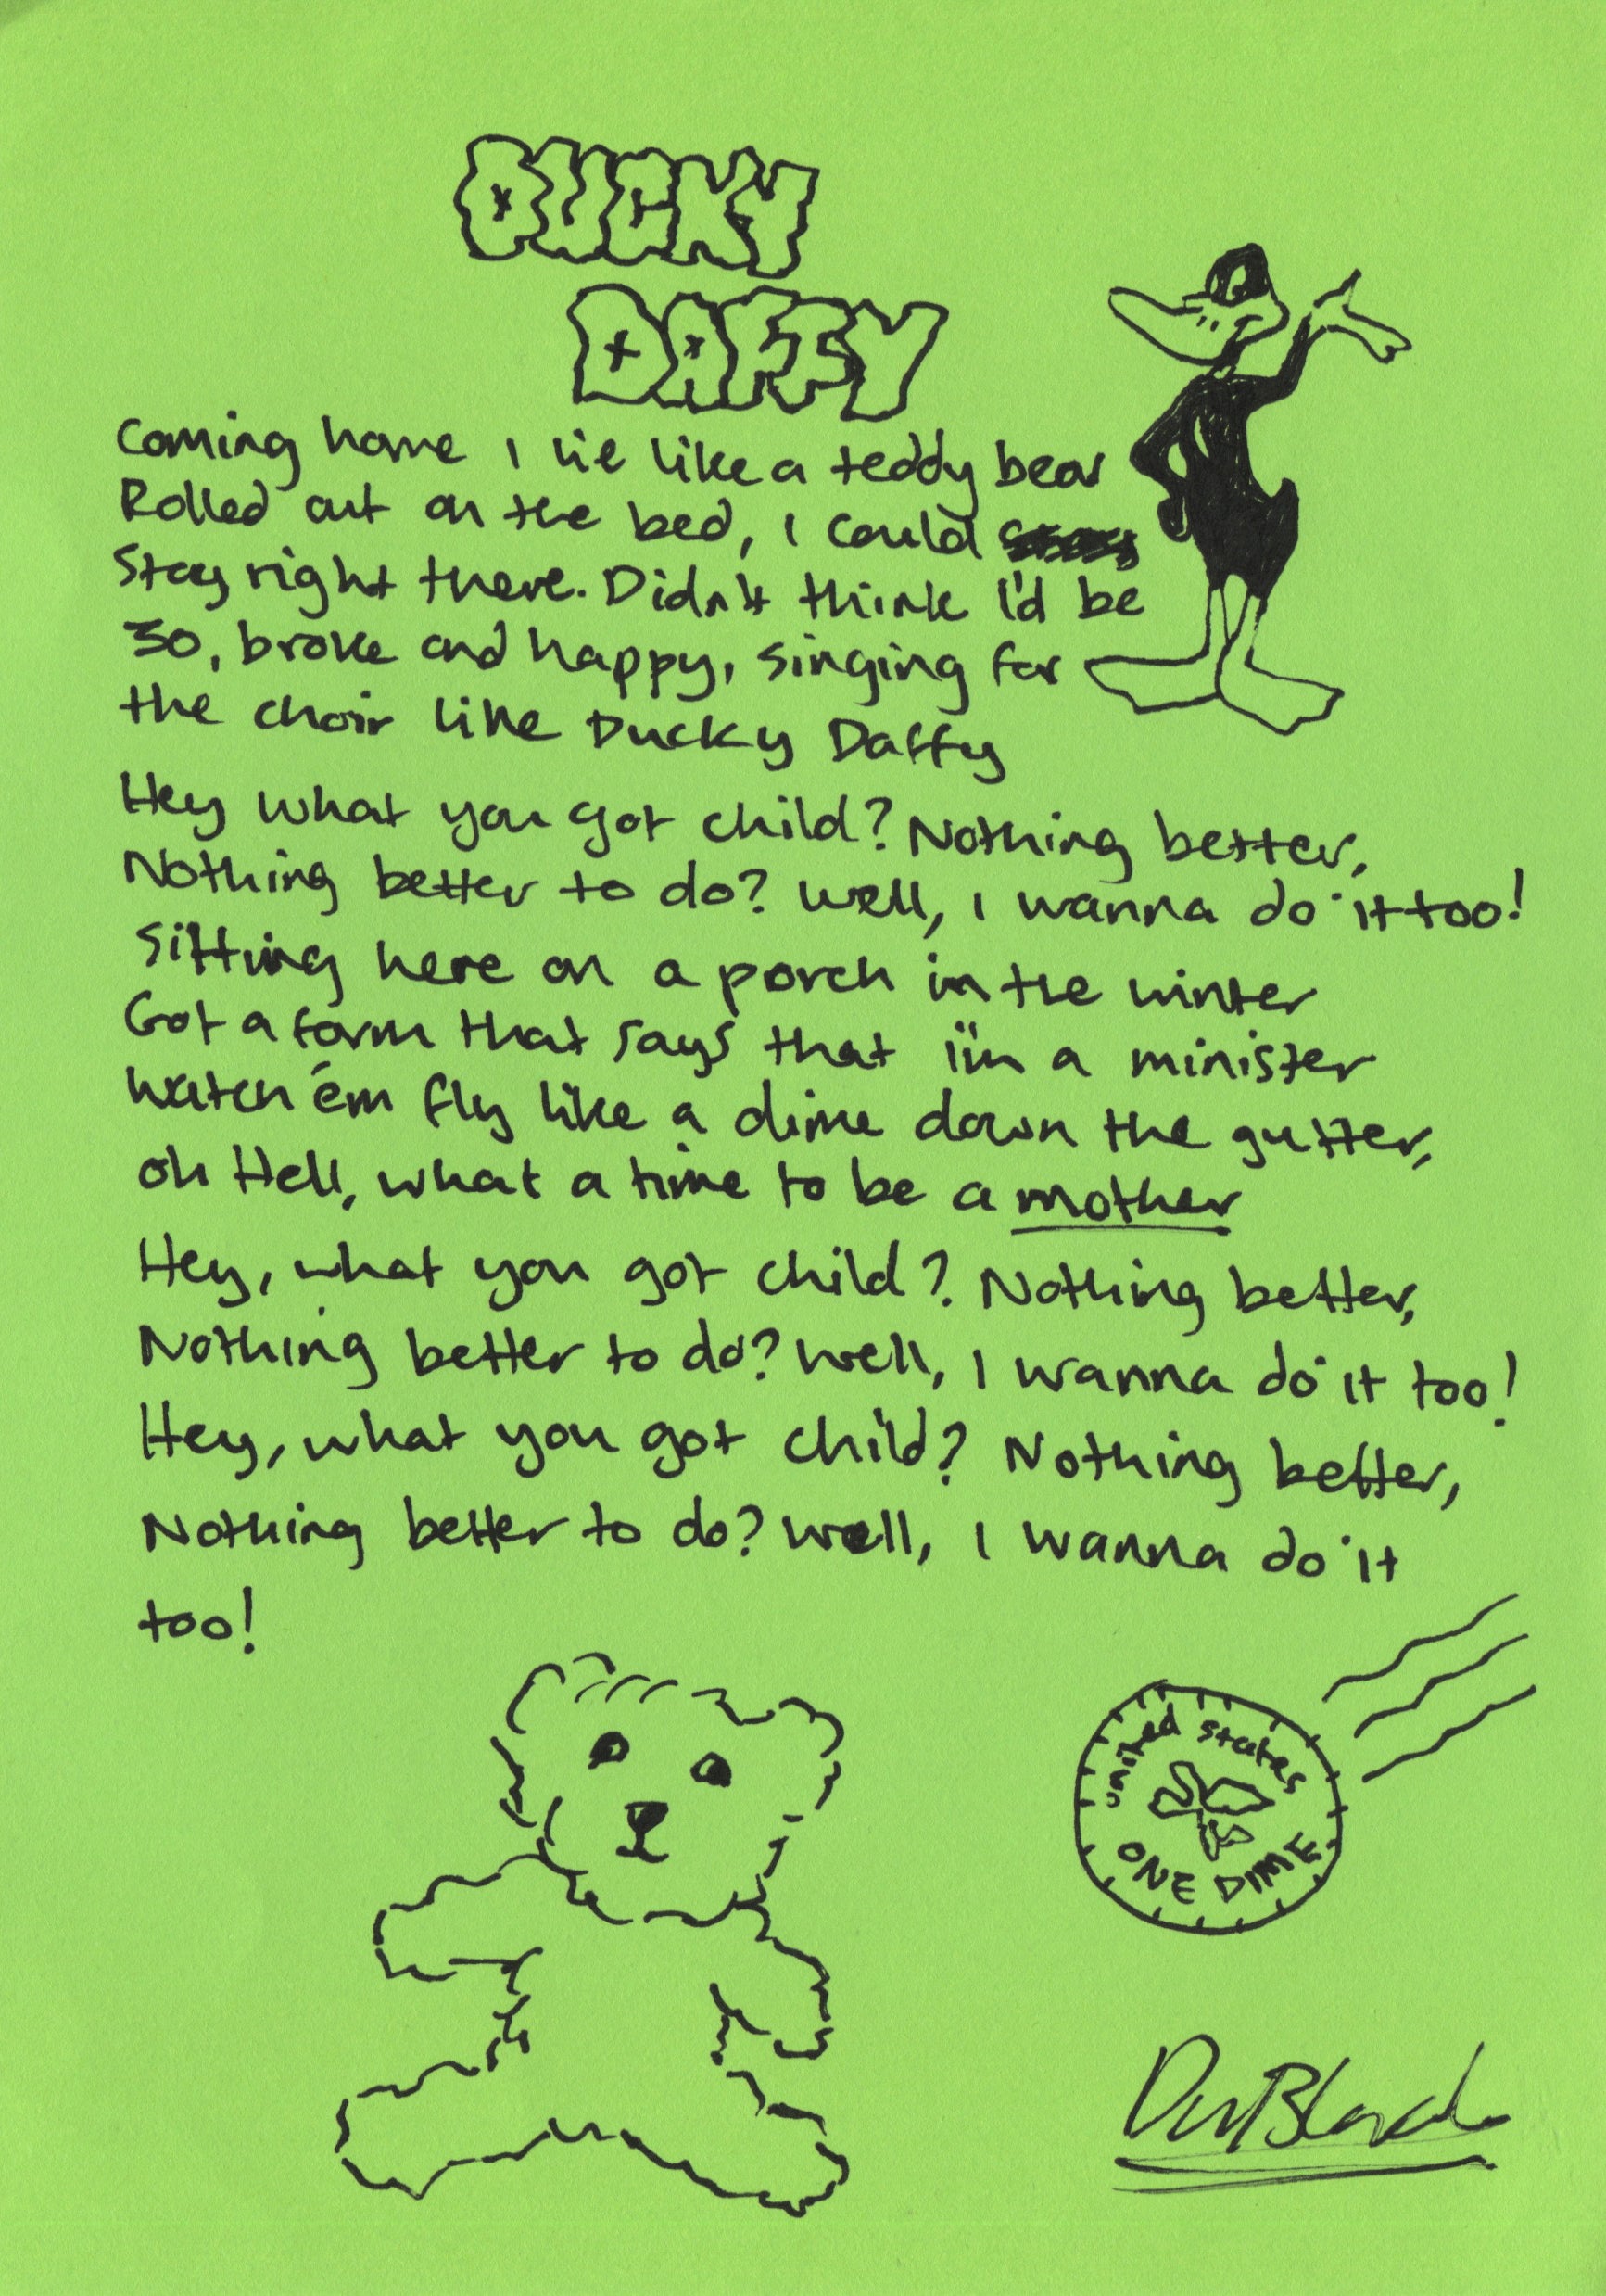 DUCKY
DAFFY
Coming home I lie like a teddy bear
Rolled out on the bed, I could
Stay right there. Didn't think I'd be
30, broke and happy, singing for
the choir like Ducky Daffy
Hey what you got child? Nothing better,
Nothing better to do? Well, I wanna do it too!
Sitting here on a porch in the winter
Got a form that says that i'm a minister
Watch 'em fly like a dime down the gutter,
oh Hell, what a time to be a mother
Hey, what you got child? Nothing better,
Nothing better to do? Well, I wanna do it too!
Hey, what you got child? Nothing better,
Nothing better to do? Well, I wanna do it
too!
united states
ONE DIME